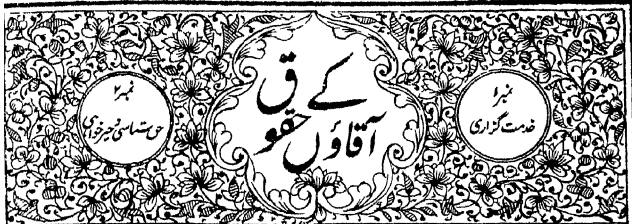 نمبر ۱
خدمت گزاری
آقاؤں کے حقوق
نمبر ۲
حق شناسی و خیرخواہی